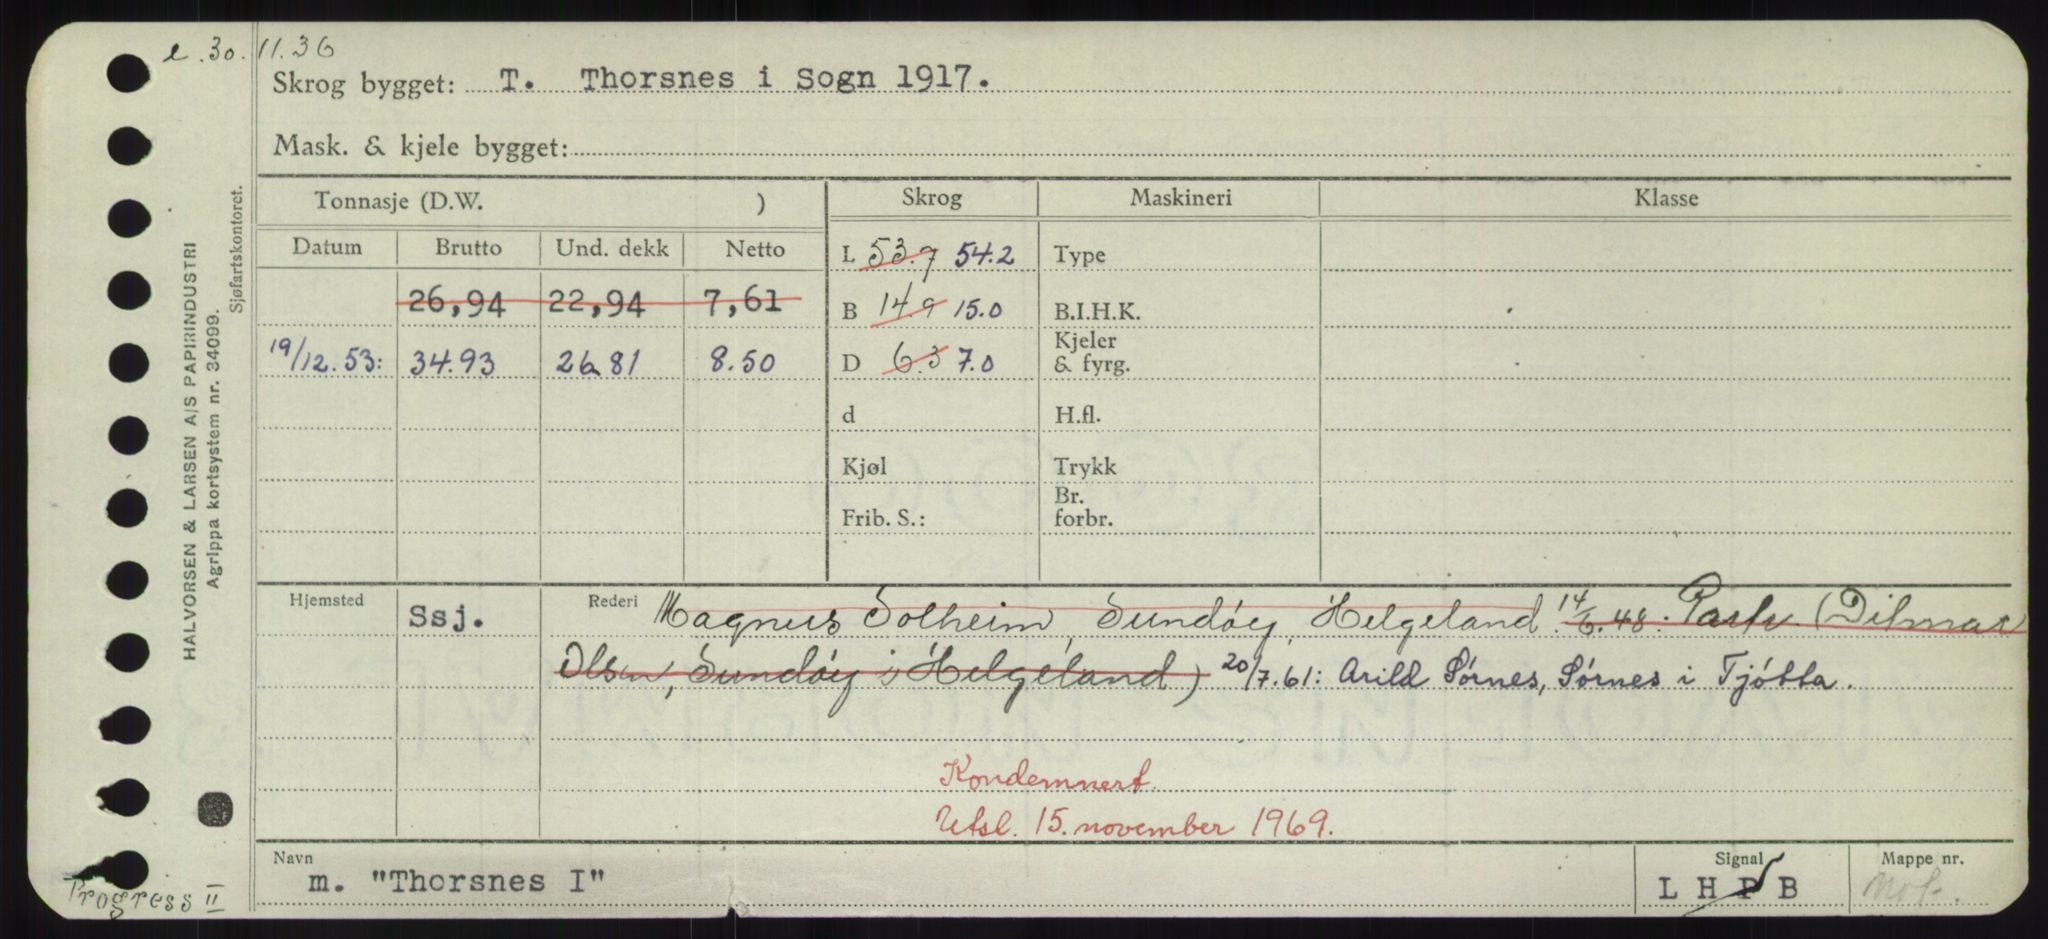 e. 30.11.36
Skrog bygget: T. Thorsnes i Sogn 1917.
Mask. & kjele bygget:
Tonnasje (D.W. )
Skrog
Maskineri
Klasse
Datum Brutto Und. dekk Netto
L 53.7 54.2
Type
26,94 22,94 7,61
B 14.9 15.0
B.I.H.K.
19/12.53: 34.93 26.81 8.50
D 6.3 7.0
Kjeler
& fyrg.
d
H.fl.
Kjøl
Trykk
Frib. S.:
Br.
forbr.
Hjemsted Ssj. Rederi Magnus Solheim, Sundøy, Helgeland. 14/6.48: Partr. (Dilmar
Olsen, Sundøy i Helgeland) 20/7.61: Arild Sørnes, Sørnes i Tjøtta.
Kondemnert.
Utsl. 15. november 1969.
Navn
m. "Thorsnes I"
Signal
L H P B
Mappe nr.
Progress II
HALVORSEN & LARSEN A/S PAPIRINDUSTRI
Agrippa kortsystem nr. 34099.
Sjøfartskontoret.